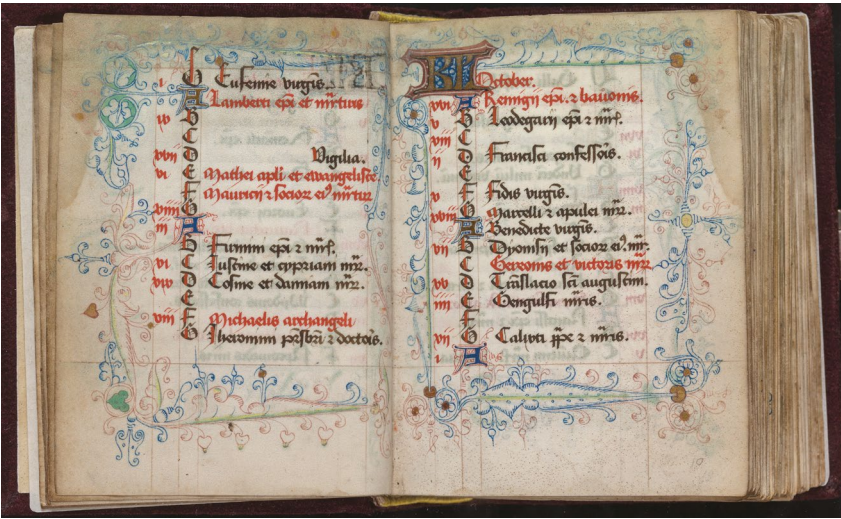 f
i G Eufemie virgīs.
A Lamberti epī et mrtiris
b
c
d Vigilia.
vi e Mathei aplī et ewangeliste
f Mauricii ꝛ socioꝝ ei9 mrtiꝝ
G
iii A
b Firmini epī ꝛ mrs.
c Justine et cypriani mrꝝ.
d Cosme et damiani mrꝝ.
e
viii f Michaelis archangeli
G Iheronimi presbri ꝛ doctoris.
KL October.
xvi A Remigii epī. ꝛ bavonis.
b Leodegarii epī ꝛ mrs.
xiii c
ii d Francisci confessoīs.
e
f Fidis virgīs.
xviii G Marcelli ꝛ apulei mrꝝ.
A Benedicte virgīs.
vii b Dyonisii et socioꝝ ei9. mr.
c Gereonis et victoris mrꝝ
xv d Trāslacio scī augustini.
iiii e Gengulfi mris.
f
xii G Calixti ppe ꝛ mris.
i A